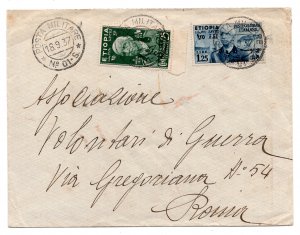 POSTA MILITARE
18.9.37
Nº 01·S
ETIOPIA
25
ETIOPIA
1.25
Associazione
Volontari di Guerra
Via Gregoriana Nº 54
Roma